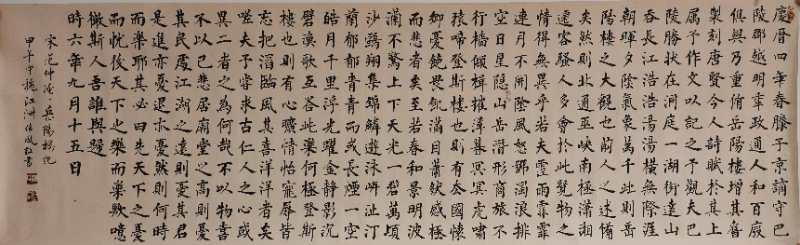 慶曆四年春滕子京謫守巴
陵郡越明年政通人和百廢
俱興乃重修岳陽樓增其舊
製刻唐賢今人詩賦於其上
屬予作文以記之予觀夫巴
陵勝狀在洞庭一湖銜遠山
吞長江浩浩湯湯橫無際涯
朝暉夕陰氣象萬千此則岳
陽樓之大觀也前人之述備
矣然則北通巫峽南極瀟湘
遷客騷人多會於此覽物之
情得無異乎若夫霪雨霏霏
連月不開陰風怒號濁浪排
空日星隱山岳潛形商旅不
行檣傾楫摧薄暮冥冥虎嘯
猿啼登斯樓也則有去國懷
鄉憂讒畏譏滿目蕭然感極
而悲者矣至若春和景明波
瀾不驚上下天光一碧萬頃
沙鷗翔集錦鱗遊泳岸芷汀
蘭郁郁青青而或長煙一空
皓月千里浮光耀金靜影沉
璧漁歌互答此樂何極登斯
樓也則有心曠情怡寵辱皆
忘把酒臨風其喜洋洋者矣
嗟夫予嘗求古仁人之心或
異二者之為何哉不以物喜
不以己悲居廟堂之高則憂
其民處江湖之遠則憂其君
是進亦憂退亦憂然則何時
而樂耶其必曰先天下之憂
而憂後天下之樂而樂歟噫
微斯人吾誰與歸
時六年九月十五日
宋范仲淹岳陽樓記
甲午江洲書